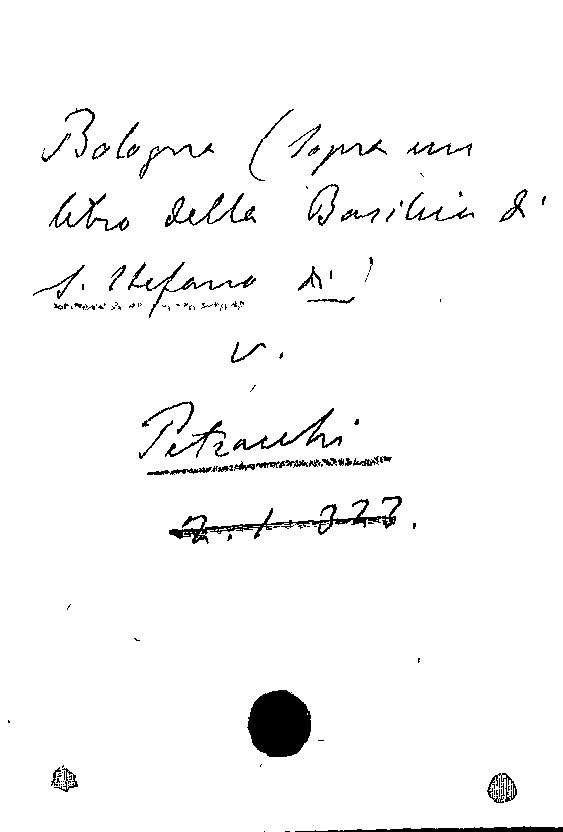 Bologna (sopra un
libro della Basilica di
S. Stefano di)
v.
Petracchi
2. 1. 323.